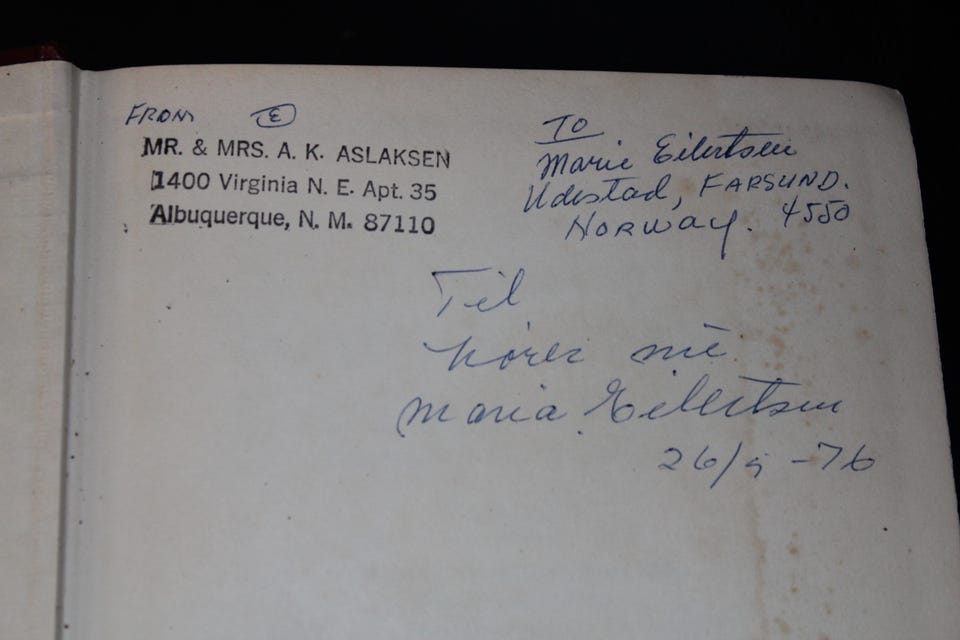 FROM E
MR. & MRS. A. K. ASLAKSEN
1400 Virginia N. E. Apt. 35
Albuquerque, N. M. 87110
TO
Marie Eilertsen
Udestad, FARSUND.
NORWAY. 4550
Til
Maria Eilertsen
26/9-76